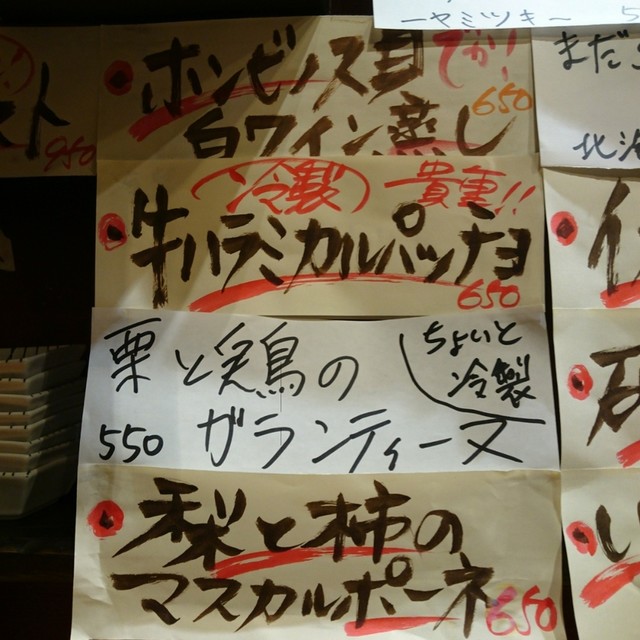 ーヤミツキー
ホンビノス貝
でかい!
白ワイン蒸し
650
スト
950
まだ
(冷製)
貴重!!
牛ハラミカルパッチョ
650
栗と鶏の
ちょいと
冷製
550
ガランティーヌ
梨と柿の
マスカルポーネ
650